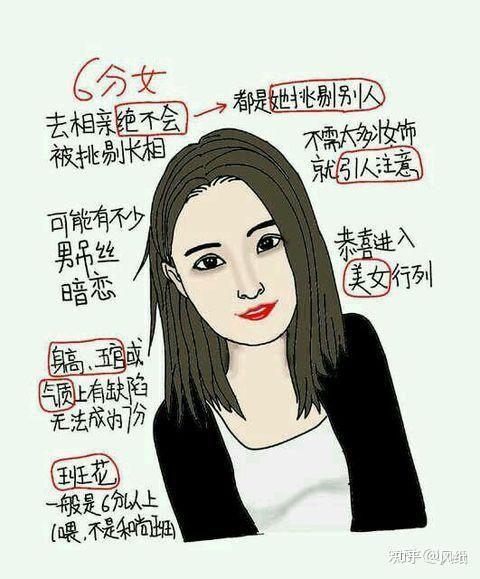 6分女
去相亲绝不会
被挑剔长相
都是她挑剔别人
不需太多妆饰
就引人注意
可能有不少
男吊丝
暗恋
恭喜进入
美女行列
身高、五官或
气质上有缺陷
无法成为7分
班花
一般是6分以上
(喂,不是和尚班)
知乎 @风纸